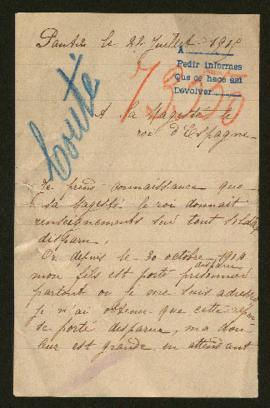 Pantin le 22 Juillet 1915
A
Pedir informes
Que se hace así
Devolver
A la Majesté le
roi d'Espagne
Je prend connaissance que
sa Magesté le roi donnait
renseignements sur tout soldat
disparu.
Or depuis le 30 octobre 1914
mon fils est porté prisonnier
disparu
partout ou je me suis adressé
je n'ai obtenu que cette
de porté disparu, ma dou-
leur est grande en attendant